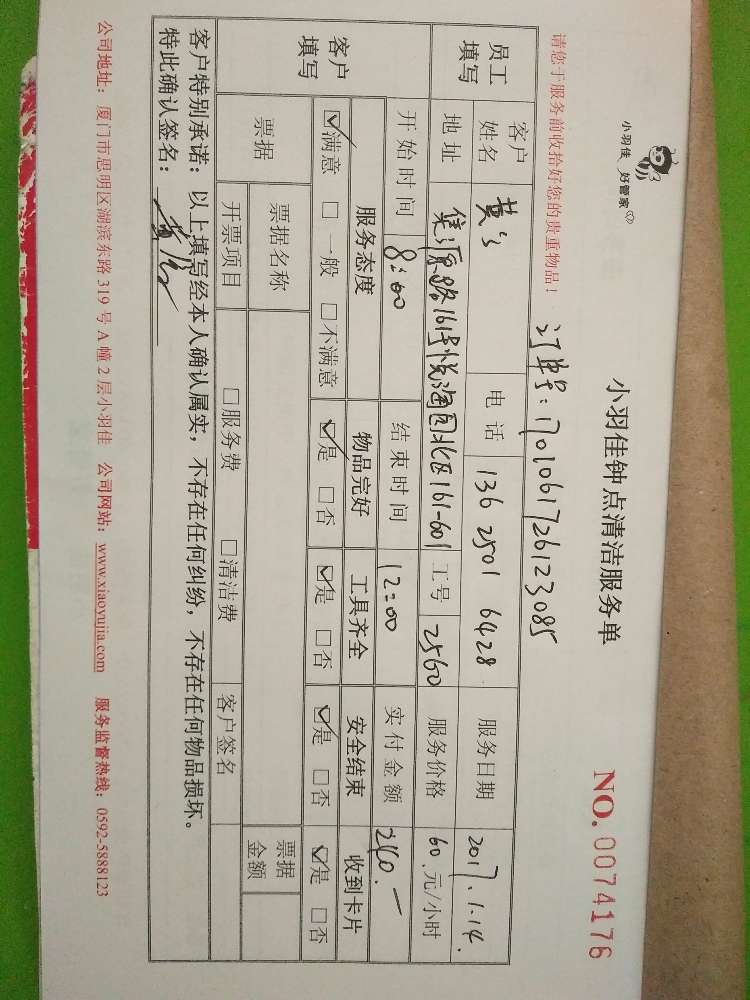 小羽佳 好管家
小羽佳钟点清洁服务单
NO. 0074176
请您于服务前收拾好您的贵重物品！
订单号：1701061726123085
员工填写
客户姓名 黄 电话 136 2501 6428 服务日期 2017.1.14.
地址 路161号悦海园北区161-601 工号 2560 服务价格 60.元/小时
开始时间 8:00 结束时间 12:00 实付金额 240.—
客户填写
服务态度 物品完好 工具齐全 安全结束 收到卡片
☑满意 □一般 □不满意 ☑是 □否 ☑是 □否 ☑是 □否 ☑是 □否
票据 票据名称 票据金额
开票项目 □服务费 □清洁费 客户签名
客户特别承诺：以上填写经本人确认属实，不存在任何纠纷，不存在任何物品损坏。
特此确认签名：
公司地址：厦门市思明区湖滨东路319号A幢2层小羽佳 公司网站：www.xiaoyujia.com 服务监督热线：0592-5888123